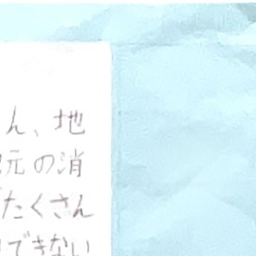 ん、地
元の消
たくさん
できない